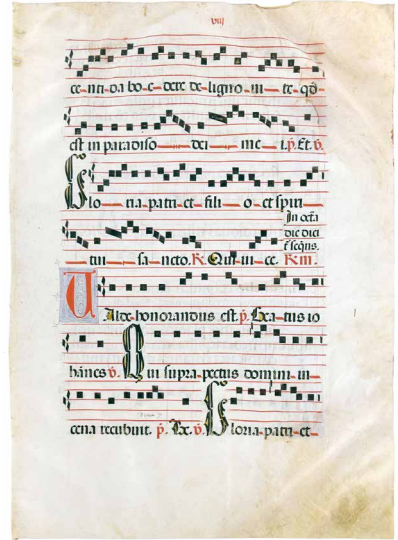 viij
ce-nti-da bo-e-dere de-ligno-ui-te-qd
est in paradiso dei me-i. p. Et. v.
Glo-ria-patri-et-fili-o-et spiri-
tui-sancto. R. Qui-ui-ce. R. iii.
In octa
die dici
t seqns.
Valde-honorandus est. p. Bea-tus io
hanes v. Qui supra-pectus domini in-
cena recubuit. p. Bx. v. Gloria-patri-et-